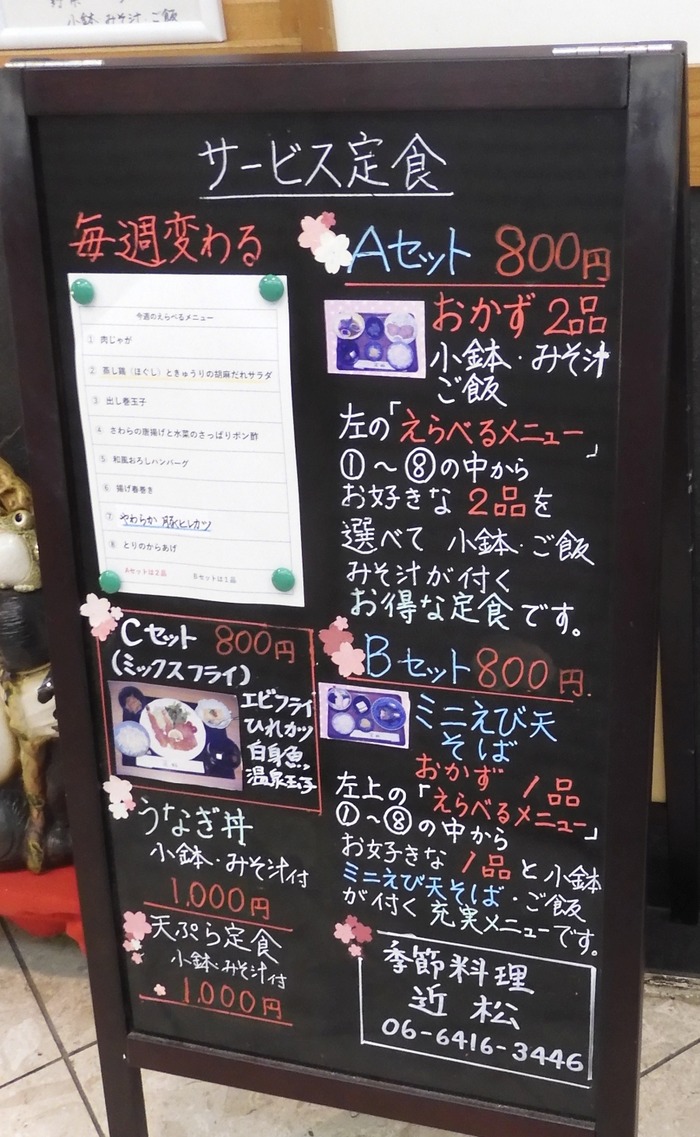 小鉢 みそ汁 ご飯
サービス定食
毎週変わる
今週のえらべるメニュー
① 肉じゃが
② 蒸し鶏（ほぐし）ときゅうりの胡麻だれサラダ
③ 出し巻玉子
④ さわらの唐揚げと水菜のさっぱりポン酢
⑤ 和風おろしハンバーグ
⑥ 揚げ春巻き
⑦ やわらか 豚ヒレカツ
⑧ とりのからあげ
Aセットは2品 Bセットは1品
Aセット 800円
おかず 2品
小鉢・みそ汁
ご飯
左の「えらべるメニュー」
①～⑧の中から
お好きな 2品を
選べて 小鉢・ご飯
みそ汁が付く
お得な定食です。
Cセット 800円
(ミックスフライ)
エビフライ
ひれカツ
白身魚
温泉玉子
Bセット 800円.
ミニえび天
そば
おかず 1品
左上の「えらべるメニュー」
①～⑧の中から
お好きな 1品と小鉢
ミニえび天そば・ご飯
が付く 充実メニューです。
うなぎ丼
小鉢・みそ汁付
1,000円
天ぷら定食
小鉢・みそ汁付
1,000円
季節料理
近松
06-6416-3446